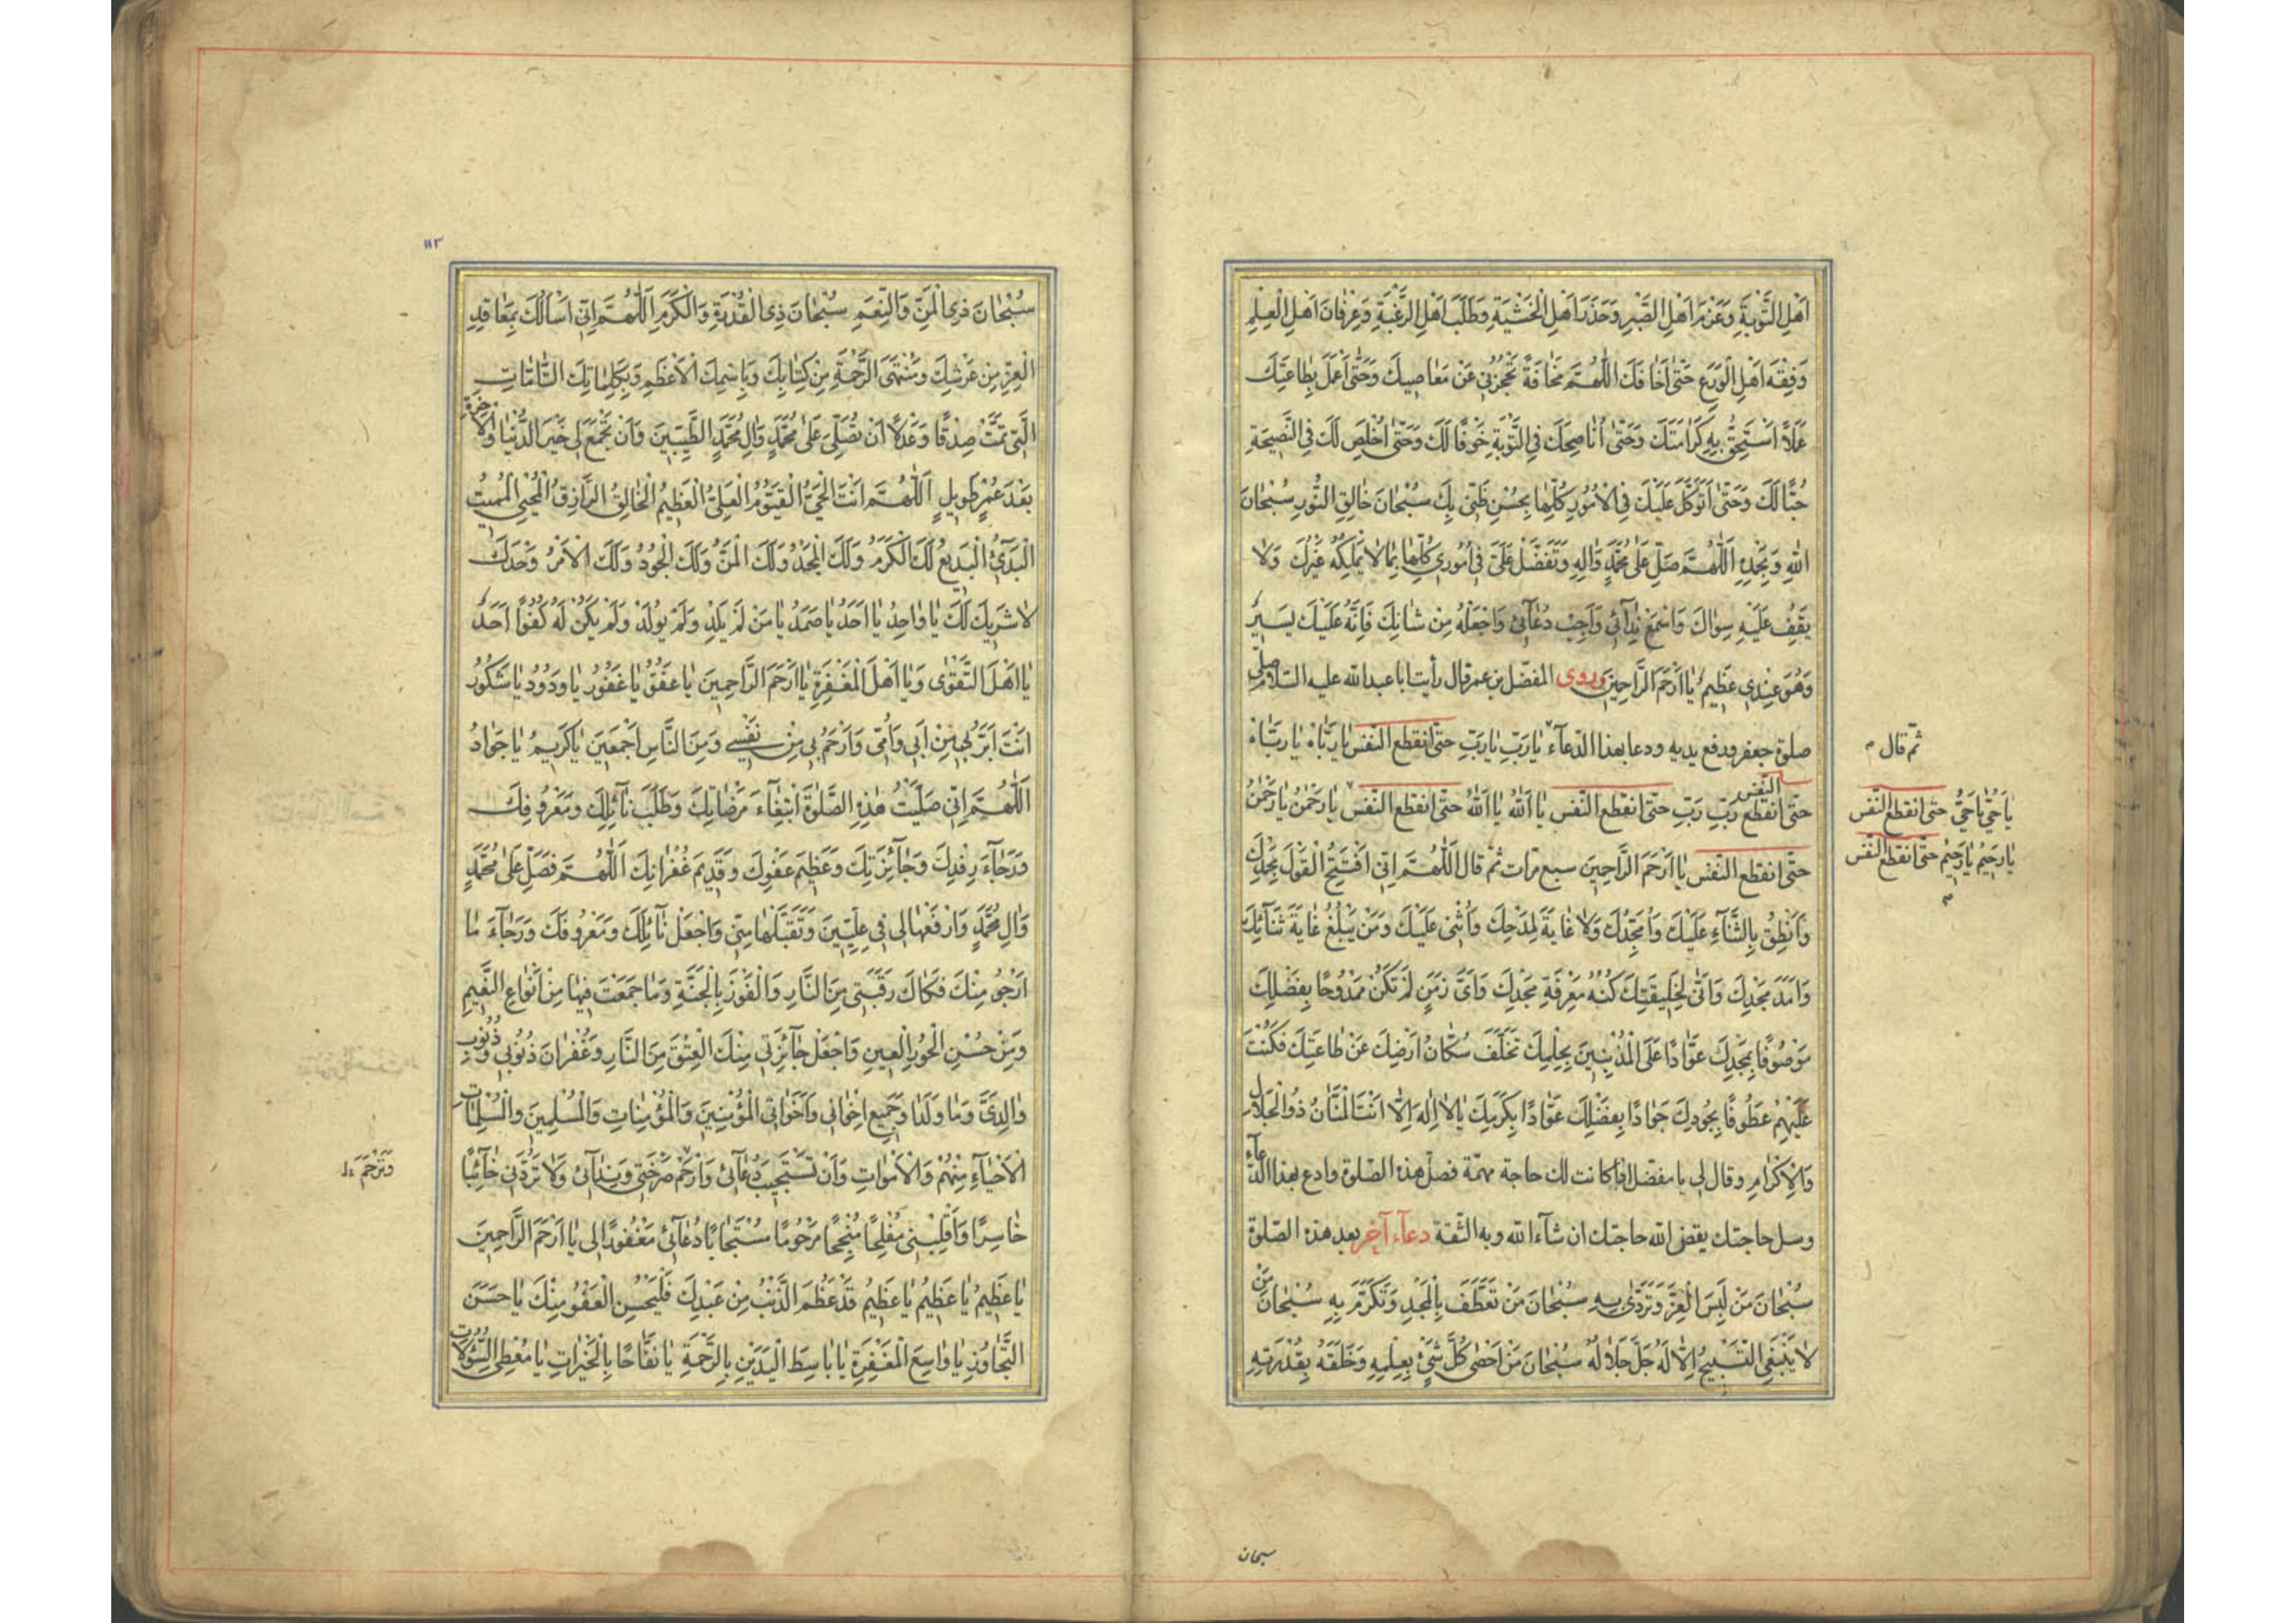 اَهْلِ التَّوْبَةِ وَعَزْمَ اَهْلِ الصَّبْرِ وَحَذَرَ اَهْلِ الْخَشْيَةِ وَطَلَبَ اَهْلِ الرَّغْبَةِ وَعِرْفَانَ اَهْلِ الْعِلْمِ
وَفِقْهَ اَهْلِ الْوَرَعِ حَتّٰى اَخَافَكَ اَللّٰهُمَّ مَخَافَةً تَحْجُزُنِي عَنْ مَعَاصِيكَ وَحَتّٰى اَعْمَلَ بِطَاعَتِكَ
عَمَلًا اَسْتَحِقُّ بِهِ كَرَامَتَكَ وَحَتّٰى اُنَاصِحَكَ فِي التَّوْبَةِ خَوْفًا لَكَ وَحَتّٰى اُخْلِصَ لَكَ فِي النَّصِيحَةِ
حُبًّا لَكَ وَحَتّٰى اَتَوَكَّلَ عَلَيْكَ فِي الْاُمُورِ كُلِّهَا بِحُسْنِ ظَنِّي بِكَ سُبْحَانَ خَالِقِ النُّورِ سُبْحَانَ
اللّٰهِ وَبِحَمْدِهِ اَللّٰهُمَّ صَلِّ عَلٰى مُحَمَّدٍ وَاٰلِهِ وَتَفَضَّلْ عَلَيَّ فِي اُمُورِي كُلِّهَا بِمَا لَا يَمْلِكُهُ غَيْرُكَ وَلَا
يَقِفُ عَلَيْهِ سِوَاكَ وَاسْمَعْ نِدَآئِي وَاَجِبْ دُعَآئِي وَاجْعَلْهُ مِنْ شَاْنِكَ فَاِنَّهُ عَلَيْكَ يَسِيرٌ
وَهُوَ عِنْدِي عَظِيمٌ يَا اَرْحَمَ الرَّاحِمِينَ وروى المفضّل بن عمر قال رأيت ابا عبد الله عليه السّلام صلّى
صلوة جعفر ورفع يديه ودعا بهذا الدّعآء يَا رَبِّ يَا رَبِّ حتّى انقطع النفس يَا رَبَّاهُ يَا رَبَّاهُ
ثم قال
حتّى انقطع النّفس رَبِّ رَبِّ حتّى انقطع النّفس يَا اَللّٰهُ يَا اَللّٰهُ حتّى انقطع النّفس يَا رَحْمٰنُ يَا رَحْمٰنُ
يَا حَيُّ يَا حَيُّ حتى انقطع النّفس
يَا رَحِيمُ يَا رَحِيمُ حتّى انقطع النّفس
حتّى انقطع النّفس يَا اَرْحَمَ الرَّاحِمِينَ سبع مرات ثم قال اَللّٰهُمَّ اِنِّي اَفْتَتِحُ الْقَوْلَ بِحَمْدِكَ
وَاَنْطِقُ بِالثَّنَآءِ عَلَيْكَ وَاُمَجِّدُكَ وَلَا غَايَةَ لِمَدْحِكَ وَاُثْنِي عَلَيْكَ وَمَنْ يَبْلُغُ غَايَةَ ثَنَآئِكَ
وَاَمَدَ مَجْدِكَ وَاَنّٰى لِخَلِيقَتِكَ كُنْهُ مَعْرِفَةِ مَجْدِكَ وَاَيَّ زَمَنٍ لَمْ تَكُنْ مَمْدُوحًا بِفَضْلِكَ
مَوْصُوفًا بِمَجْدِكَ عَوَّادًا عَلَى الْمُذْنِبِينَ بِحِلْمِكَ تَخَلَّفَ سُكَّانُ اَرْضِكَ عَنْ طَاعَتِكَ فَكُنْتَ
عَلَيْهِمْ عَطُوفًا بِجُودِكَ جَوَادًا بِفَضْلِكَ عَوَّادًا بِكَرَمِكَ يَا لَا اِلٰهَ اِلَّا اَنْتَ الْمَنَّانُ ذُو الْجَلَالِ
وَالْاِكْرَامِ وقال لى يا مفضّل اذا كانت لك حاجة مهمّة فصلّ هذه الصّلوة وادع بهذا الدّعآء
وسل حاجتك يقضى الله حاجتك ان شآء الله وبه الثّقة دعآء آخر بعد هذه الصّلوة
سُبْحَانَ مَنْ لَبِسَ الْعِزَّ وَتَرَدّٰى بِهِ سُبْحَانَ مَنْ تَعَطَّفَ بِالْمَجْدِ وَتَكَرَّمَ بِهِ سُبْحَانَ مَنْ
لَا يَنْبَغِي التَّسْبِيحُ اِلَّا لَهُ جَلَّ جَلَالُهُ سُبْحَانَ مَنْ اَحْصٰى كُلَّ شَيْءٍ بِعِلْمِهِ وَخَلَقَهُ بِقُدْرَتِهِ
سبحان
١١٣
سُبْحَانَ ذِي الْمَنِّ وَالنِّعَمِ سُبْحَانَ ذِي الْقُدْرَةِ وَالْكَرَمِ اَللّٰهُمَّ اِنِّي اَسْاَلُكَ بِمَعَاقِدِ
الْعِزِّ مِنْ عَرْشِكَ وَمُنْتَهَى الرَّحْمَةِ مِنْ كِتَابِكَ وَبِاسْمِكَ الْاَعْظَمِ وَبِكَلِمَاتِكَ التَّامَّاتِ
الَّتِي تَمَّتْ صِدْقًا وَعَدْلًا اَنْ تُصَلِّيَ عَلٰى مُحَمَّدٍ وَاٰلِ مُحَمَّدٍ الطَّيِّبِينَ وَاَنْ تَجْمَعَ لِي خَيْرَ الدُّنْيَا وَالْاٰخِرَةِ
بَعْدَ عُمْرٍ طَوِيلٍ اَللّٰهُمَّ اَنْتَ الْحَيُّ الْقَيُّومُ الْعَلِيُّ الْعَظِيمُ الْخَالِقُ الرَّازِقُ الْمُحْيِي الْمُمِيتُ
الْبَدِيءُ الْبَدِيعُ لَكَ الْكَرَمُ وَلَكَ الْمَجْدُ وَلَكَ الْمَنُّ وَلَكَ الْجُودُ وَلَكَ الْاَمْرُ وَحْدَكَ
لَا شَرِيكَ لَكَ يَا وَاحِدُ يَا اَحَدُ يَا صَمَدُ يَا مَنْ لَمْ يَلِدْ وَلَمْ يُولَدْ وَلَمْ يَكُنْ لَهُ كُفُوًا اَحَدٌ
يَا اَهْلَ التَّقْوٰى وَيَا اَهْلَ الْمَغْفِرَةِ يَا اَرْحَمَ الرَّاحِمِينَ يَا عَفُوُّ يَا غَفُورُ يَا وَدُودُ يَا شَكُورُ
اَنْتَ اَبَرُّ بِي مِنْ اَبِي وَاُمِّي وَاَرْحَمُ بِي مِنْ نَفْسِي وَمِنَ النَّاسِ اَجْمَعِينَ يَا كَرِيمُ يَا جَوَادُ
اَللّٰهُمَّ اِنِّي صَلَّيْتُ هٰذِهِ الصَّلٰوةَ ابْتِغَآءَ مَرْضَاتِكَ وَطَلَبَ نَآئِلِكَ وَمَعْرُوفِكَ
وَرَجَآءَ رِفْدِكَ وَجَآئِزَتِكَ وَعَظِيمِ عَفْوِكَ وَقَدِيمِ غُفْرَانِكَ اَللّٰهُمَّ فَصَلِّ عَلٰى مُحَمَّدٍ
وَاٰلِ مُحَمَّدٍ وَارْفَعْهَا لِي فِي عِلِّيِّينَ وَتَقَبَّلْهَا مِنِّي وَاجْعَلْ نَآئِلَكَ وَمَعْرُوفَكَ وَرَجَآءَ مَا
اَرْجُو مِنْكَ فَكَاكَ رَقَبَتِي مِنَ النَّارِ وَالْفَوْزَ بِالْجَنَّةِ وَمَا جَمَعْتَ فِيهَا مِنْ اَنْوَاعِ النَّعِيمِ
وَمِنْ حُسْنِ الْحُورِ الْعِينِ وَاجْعَلْ جَآئِزَتِي مِنْكَ الْعِتْقَ مِنَ النَّارِ وَغُفْرَانَ ذُنُوبِي وَذُنُوبِ
وَالِدَيَّ وَمَا وَلَدَا وَجَمِيعِ اِخْوَانِي وَاَخَوَاتِي الْمُؤْمِنِينَ وَالْمُؤْمِنَاتِ وَالْمُسْلِمِينَ وَالْمُسْلِمَاتِ
الْاَحْيَآءِ مِنْهُمْ وَالْاَمْوَاتِ وَاَنْ تَسْتَجِيبَ دُعَآئِي وَارْحَمْ صَرْخَتِي وَنِدَآئِي وَلَا تَرُدَّنِي خَآئِبًا
وَتَرْحَمَ
خَاسِرًا وَاَقْلِبْنِي مُفْلِحًا مُنْجِحًا مَرْحُومًا مُسْتَجَابًا دُعَآئِي مَغْفُورًا لِي يَا اَرْحَمَ الرَّاحِمِينَ
يَا عَظِيمُ يَا عَظِيمُ يَا عَظِيمُ قَدْ عَظُمَ الذَّنْبُ مِنْ عَبْدِكَ فَلْيَحْسُنِ الْعَفْوُ مِنْكَ يَا حَسَنَ
التَّجَاوُزِ يَا وَاسِعَ الْمَغْفِرَةِ يَا بَاسِطَ الْيَدَيْنِ بِالرَّحْمَةِ يَا نَفَّاحًا بِالْخَيْرَاتِ يَا مُعْطِيَ السُّؤُلَاتِ